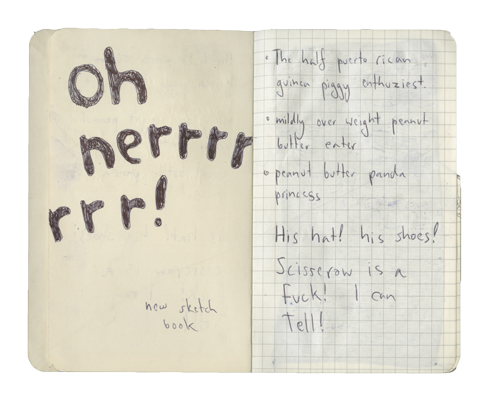 oh
nerrrr
rrr!
new sketch
book
• The half puerto rican
guinea piggy enthuziest.
• mildly over weight peanut
butter eater
• peanut butter panda
princess
His hat! his shoes!
Scisserow is a
fuck! I can
Tell!